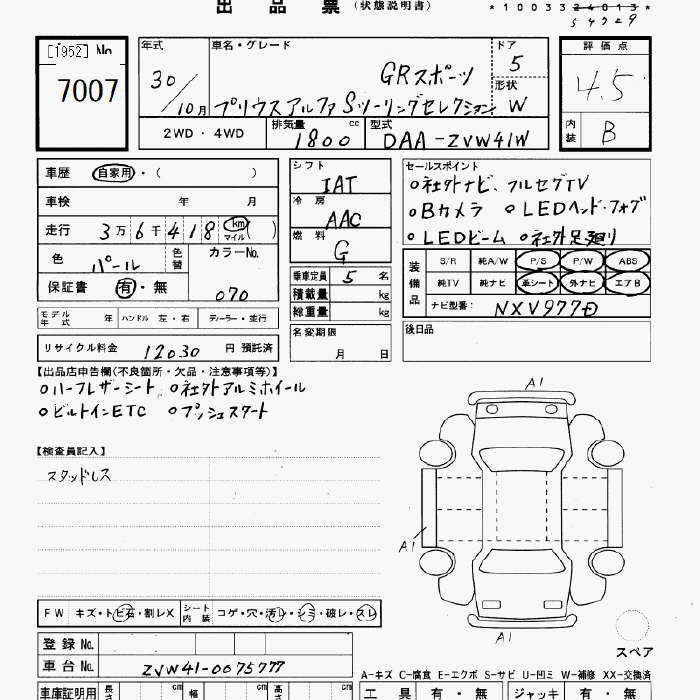 出品票（状態説明書）
*10033 24013*
54929
[1952] No
7007
年式 30/10月
車名・グレード GRスポーツ
プリウスアルファ Sツーリングセレクション
ドア 5
形状 W
評価点 4.5
内装 B
2WD・4WD
排気量 1800 cc
型式 DAA-ZVW41W
車歴 自家用・（ ）
車検 年 月
走行 3万6千418 km マイル ( )
色 パール 色替
カラーNo. 070
保証書 有・無
モデル年式 年 ハンドル 左・右 ディーラー・並行
リサイクル料金 12030 円 預託済
シフト IAT
冷房 AAC
燃料 G
乗車定員 5 名
積載量 kg
総重量 kg
名変期限 月 日
セールスポイント
○社外ナビ、フルセグTV
○Bカメラ ○LEDヘッド・フォグ
○LEDビーム ○社外足廻り
装備品
S/R 純A/W P/S P/W ABS
純TV 純ナビ 革シート 外ナビ エアB
ナビ型番： NXV977D
後日品
【出品店申告欄(不良箇所・欠品・注意事項等)】
○ハーフレザーシート ○社外アルミホイール
○ビルトインETC ○プッシュスタート
【検査員記入】
スタッドレス
A1
A1
A1
スペア
FW キズ・トビ石・割レX
シート内装 コゲ・穴・汚レ・シミ・破レ・スレ
登録No.
車台No. ZVW41-0075777
A-キズ C-腐食 E-エクボ S-サビ U-凹ミ W-補修 XX-交換済
車庫証明用 長さ cm 幅 cm 高さ cm
工具 有・無 ジャッキ 有・無